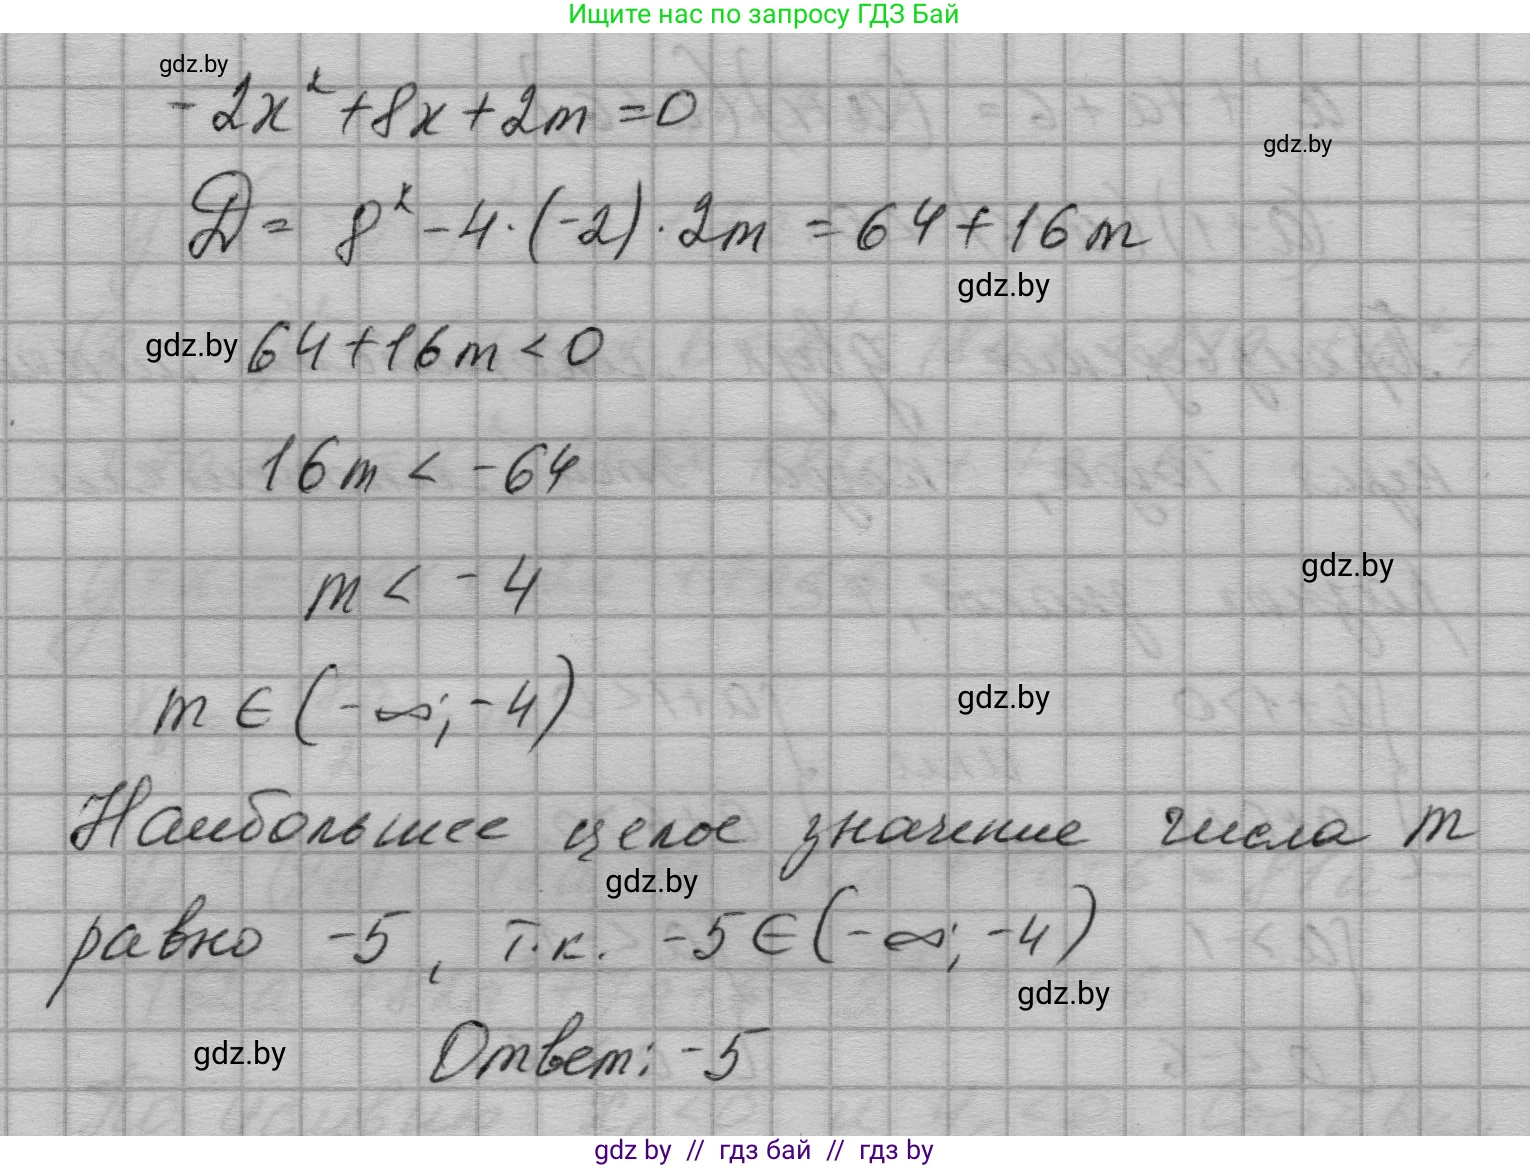 Ищите нас по запросу ГДЗ Бай
gdz.by
-2x² + 8x + 2m = 0
gdz.by
D = 8² - 4 · (-2) · 2m = 64 + 16m
gdz.by
gdz.by
64 + 16m < 0
16m < -64
gdz.by
m < -4
gdz.by
m ∈ (-∞; -4)
Наибольшее целое значение числа m
gdz.by
равно -5, т.к. -5 ∈ (-∞; -4)
gdz.by
gdz.by
Ответ: -5
gdz by // гдз бай // гдз by